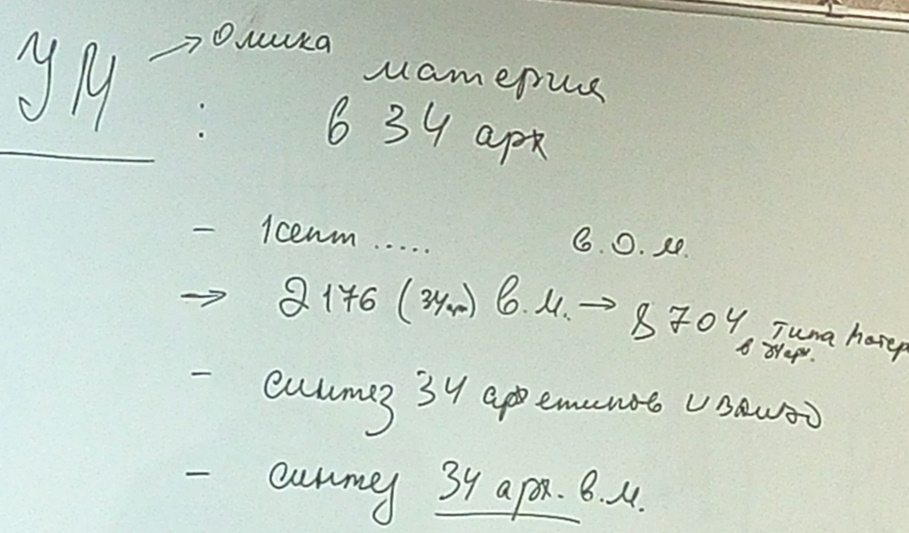 УМ → Омика
материя
: в 34 арх
- 1септ ..... в.О.м.
→ 2176 (34ар) в.м. → 8704 типа матер
в 34арх.
- синтез 34 архетипов ИВДИВО
- синтез 34 арх. в.м.